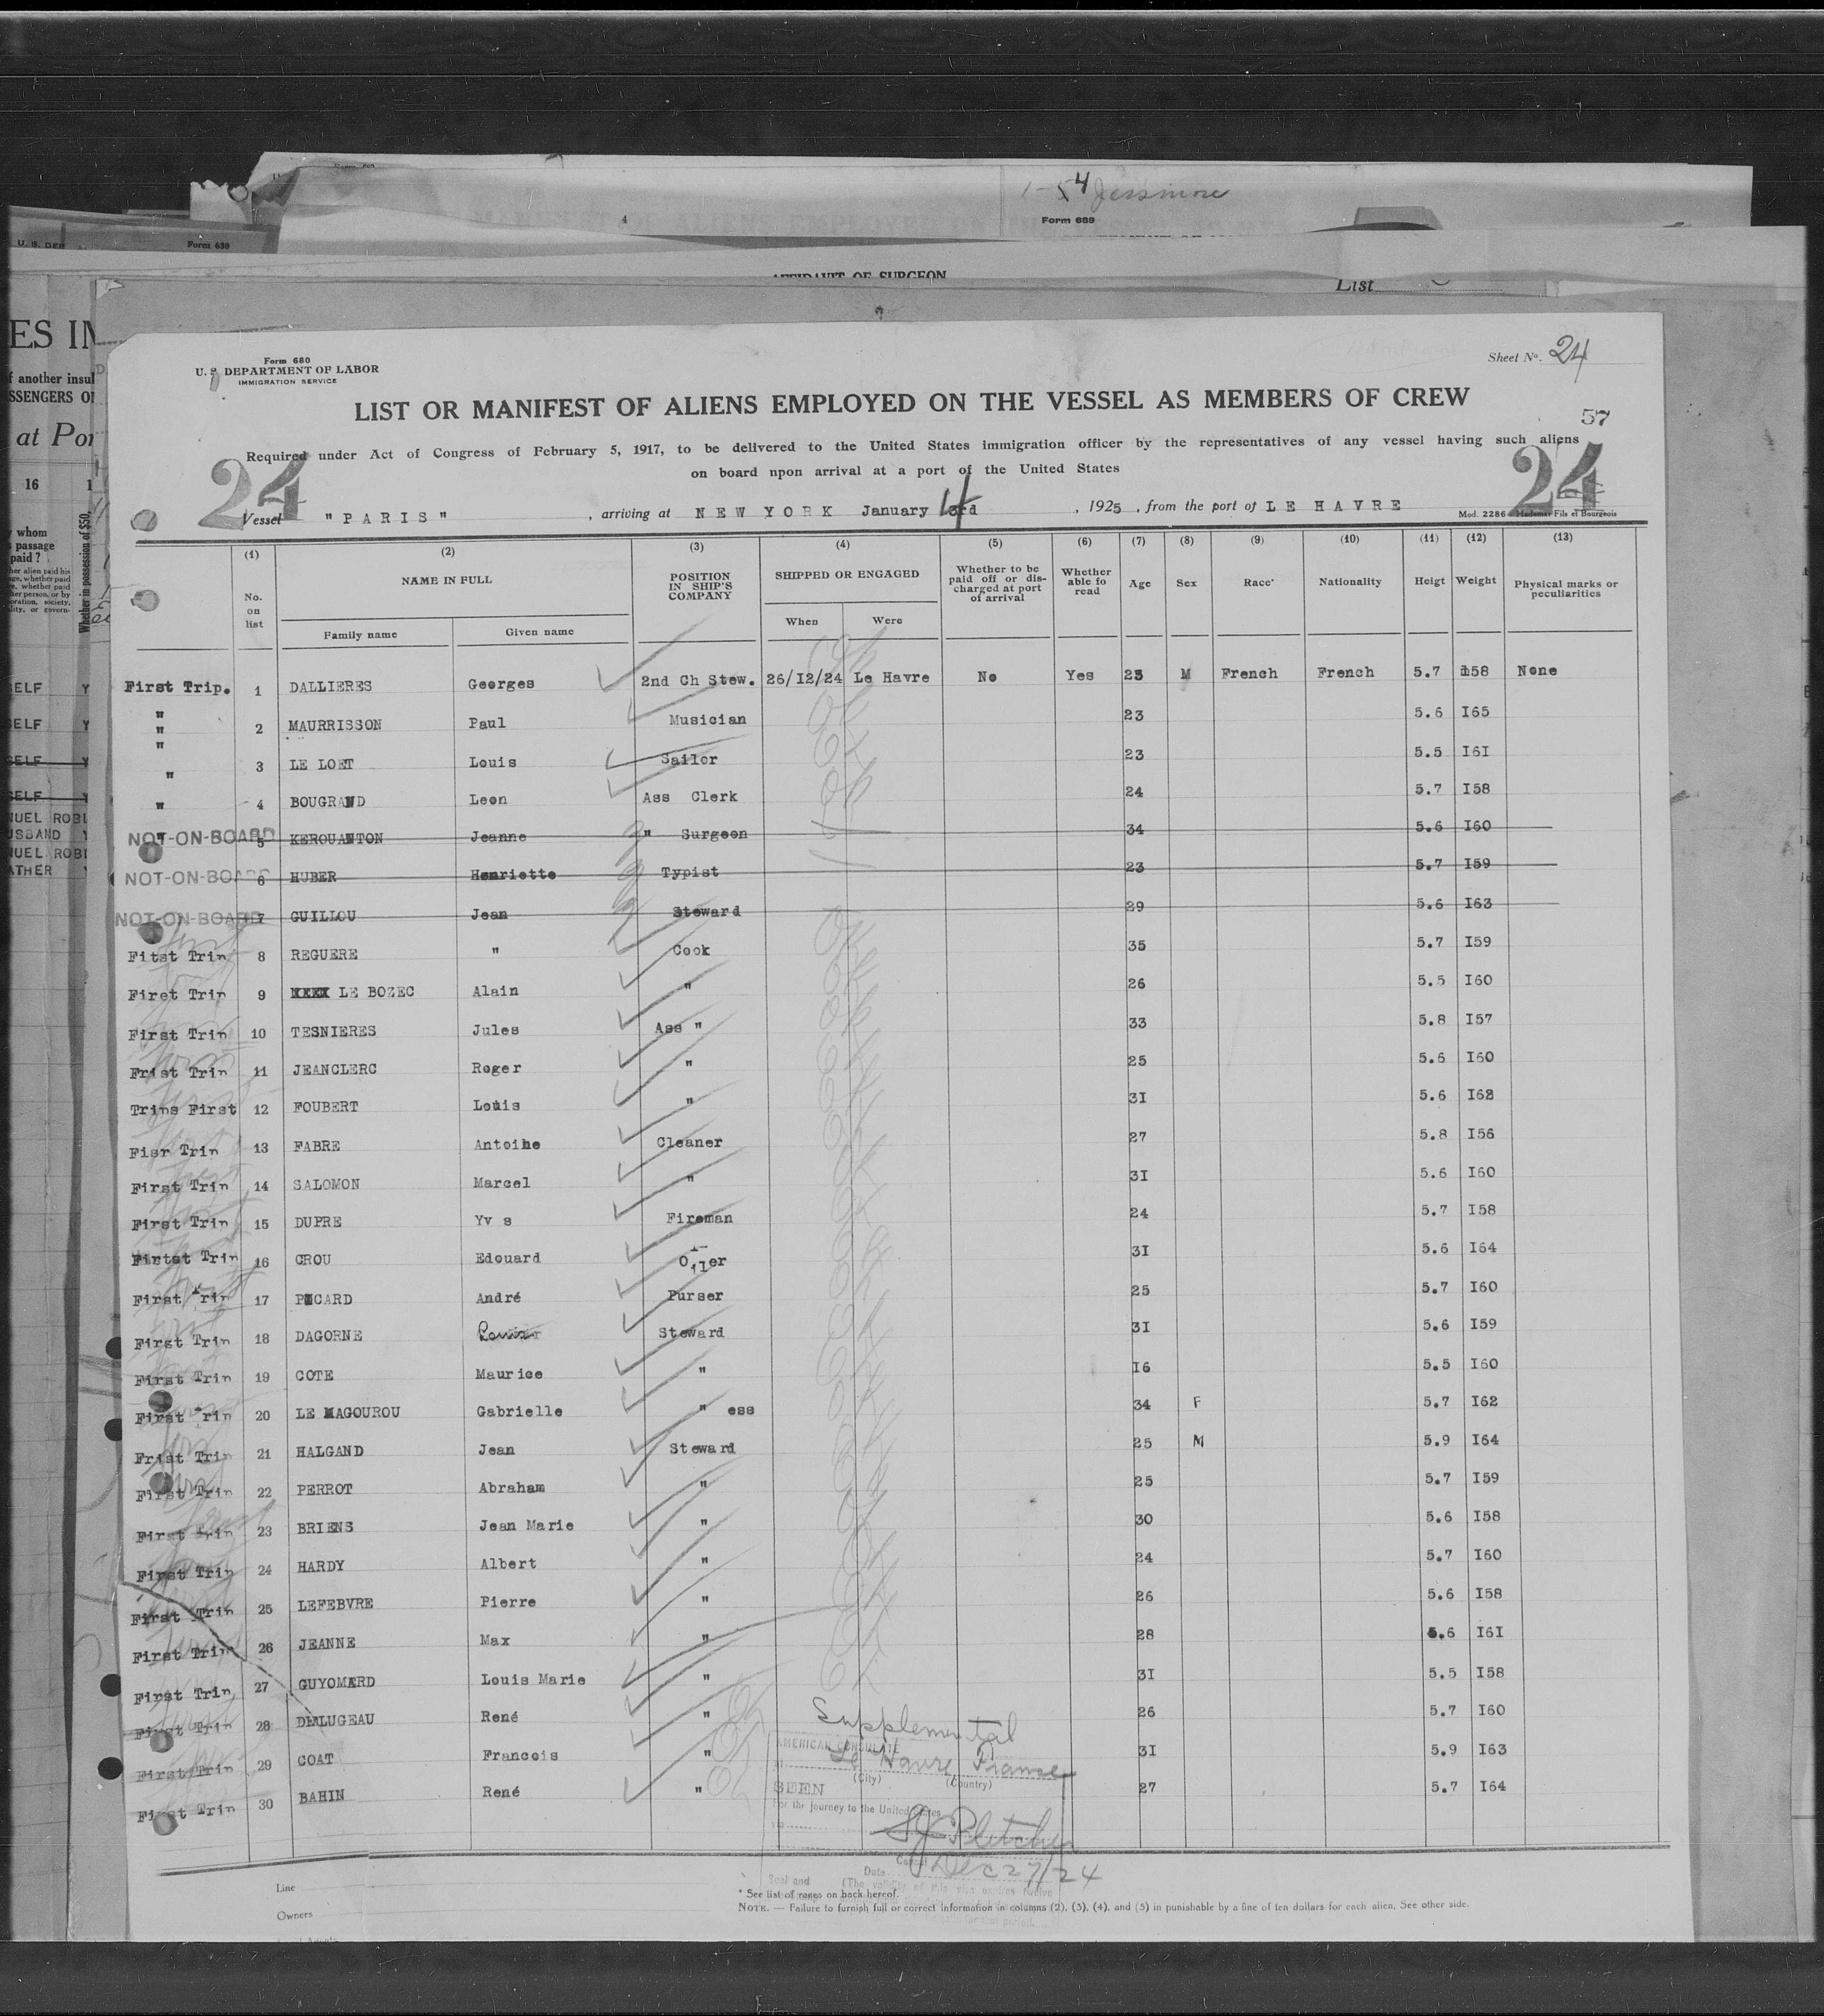 1-54 Jessmore
4
Form 689
U. S. DEP
Form 630
AFFIDAVIT OF SURGEON
List
ES IN
f another insul
SSENGERS O
at Por
16
y whom
s passage
paid ?
Whether in possession of $50,
SELF Y
SELF Y
SELF Y
SELF Y
NUEL ROBI
USBAND Y
NUEL ROBI
ATHER
Form 680
U. S. DEPARTMENT OF LABOR
IMMIGRATION SERVICE
Sheet No. 24
LIST OR MANIFEST OF ALIENS EMPLOYED ON THE VESSEL AS MEMBERS OF CREW
57
Required under Act of Congress of February 5, 1917, to be delivered to the United States immigration officer by the representatives of any vessel having such aliens
on board npon arrival at a port of the United States
24 24
Vessel "PARIS" , arriving at NEW YORK January 3rd 4 , 1925 , from the port of LE HAVRE
Mod. 2286 Hademar Fils et Bourgeois
(1) (2) (3) (4) (5) (6) (7) (8) (9) (10) (11) (12) (13)
No. on list NAME IN FULL POSITION IN SHIP'S COMPANY SHIPPED OR ENGAGED Whether to be paid off or dis- charged at port of arrival Whether able fo read Age Sex Race* Nationality Heigt Weight Physical marks or peculiarities
Family name Given name When Were
First Trip. 1 DALLIERES Georges 2nd Ch Stew. 26/I2/24 Le Havre No Yes 25 M French French 5.7 158 None
" 2 MAURRISSON Paul Musician 23 5.6 I65
" 3 LE LOET Louis Sailor 23 5.5 I6I
" 4 BOUGRAND Leon Ass Clerk 24 5.7 I58
NOT-ON-BOARD " 5 KEROUANTON Jeanne " Surgeon 34 5.6 I60
NOT-ON-BOARD 6 HUBER Henriette Typist 23 5.7 I59
NOT-ON-BOARD 7 GUILLOU Jean Steward 29 5.6 I63
Fitst Trip 8 REGUERE " Cook 35 5.7 I59
First Trip 9 XXXX LE BOZEC Alain " 26 5.5 I60
First Trip 10 TESNIERES Jules Ass " 33 5.8 I57
Frist Trip 11 JEANCLERC Roger " 25 5.6 I60
Trips First 12 FOUBERT Louis " 3I 5.6 I62
Fisr Trip 13 FABRE Antoine Cleaner 27 5.8 I56
First Trip 14 SALOMON Marcel " 3I 5.6 I60
First Trip 15 DUPRE Yv s Fireman 24 5.7 I58
Firtst Trip 16 CROU Edouard Oiler 3I 5.6 I64
First Trip 17 PICARD André Purser 25 5.7 I60
First Trip 18 DAGORNE Steward 3I 5.6 I59
First Trip 19 COTE Maurice " I6 5.5 I60
First Trip 20 LE MAGOUROU Gabrielle " ess 34 F 5.7 I62
Frist Trip 21 HALGAND Jean Steward 25 M 5.9 I64
First Trip 22 PERROT Abraham " 25 5.7 I59
First Trip 23 BRIENS Jean Marie " 30 5.6 I58
First Trip 24 HARDY Albert " 24 5.7 I60
First Trip 25 LEFEBVRE Pierre " 26 5.6 I58
First Trip 26 JEANNE Max " 28 5.6 I6I
First Trip 27 GUYOMARD Louis Marie " 3I 5.5 I58
First Trip 28 DELUGEAU René " 26 5.7 I60
First Trip 29 COAT Francois " 3I 5.9 I63
First Trip 30 BAHIN René " 27 5.7 I64
Supplemental
AMERICAN CONSULATE
at Le Havre, France
(City) (Country)
SEEN
For the journey to the United States
via
Pletcher
Consul
Date Dec 27/24
Seal and (The validity of this visa expires twelve
Line
Owners
* See list of races on back hereof.
NOTE. — Failure to furnish full or correct Information in columns (2), (3), (4), and (5) in punishable by a fine of ten dollars for each alien, See other side.